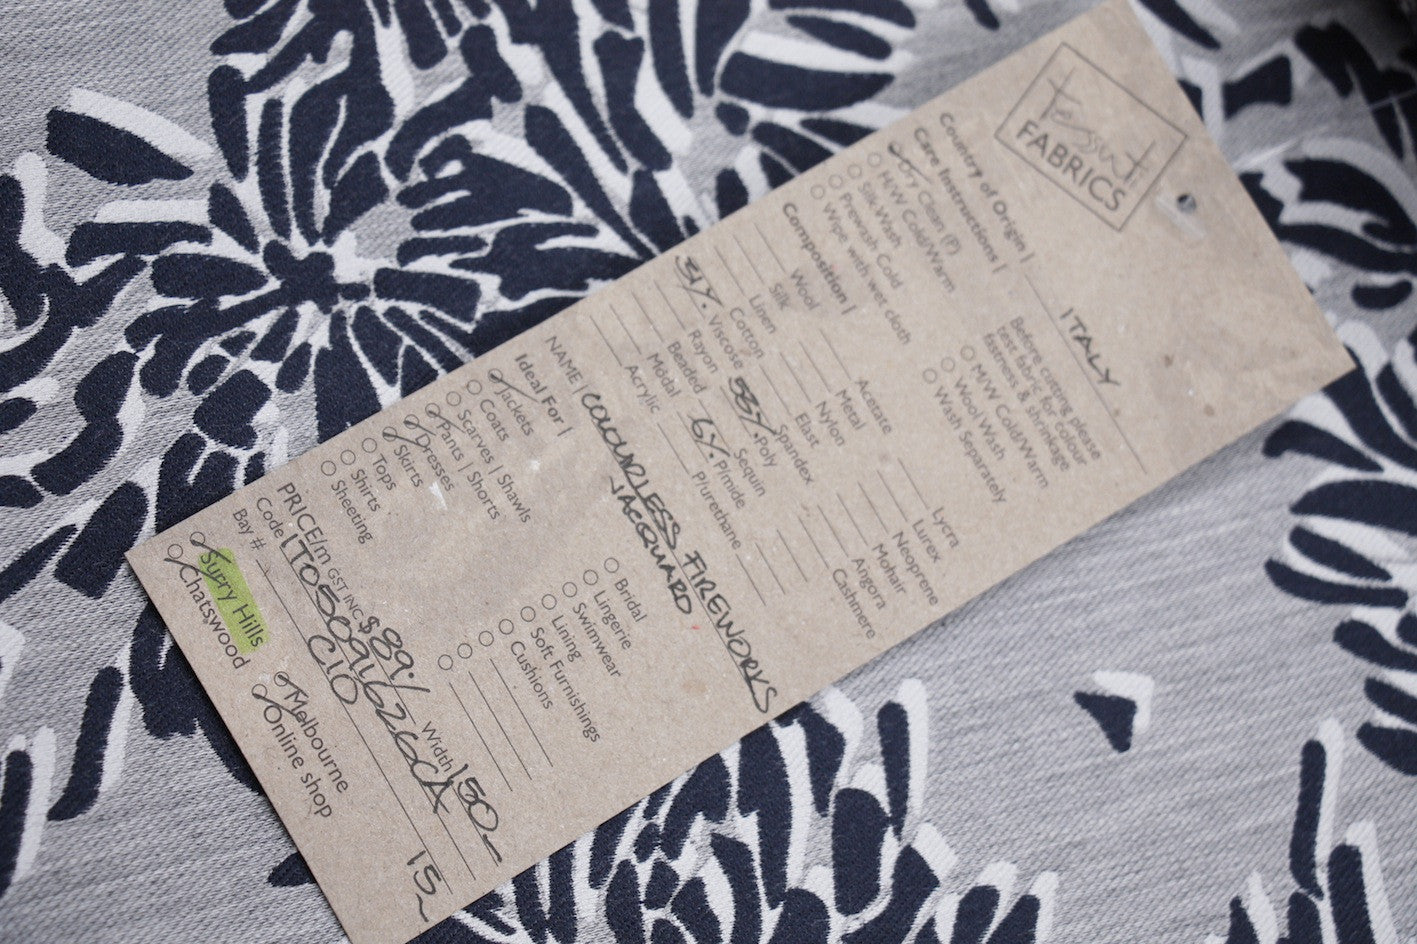 Tessuti
FABRICS
Country of Origin | ITALY
Care Instructions |
Dry Clean (P)
H/W Cold/Warm
Silk Wash
Prewash Cold
Wipe with wet cloth
Before cutting please
test fabric for colour
fastness & shrinkage
M/W Cold/Warm
Wool Wash
Wash Separately
Composition |
Wool Acetate Lycra
Silk Metal Lurex
Linen Nylon Neoprene
Cotton Elast Mohair
Viscose Spandex Angora
Rayon 55% Poly Cashmere
Beaded Sequin
Modal 6% Pimide
Acrylic Plurethane
NAME | COLOURLESS FIREWORKS
JACQUARD
Ideal For |
Jackets Bridal
Coats Lingerie
Scarves | Shawls Swimwear
Pants | Shorts Lining
Dresses Soft Furnishings
Skirts Cushions
Tops
Shirts
Sheeting
PRICE/m GST INC $89 Width 150
Code
C10 15
Bay #
Surry Hills Melbourne
Chatswood Online shop